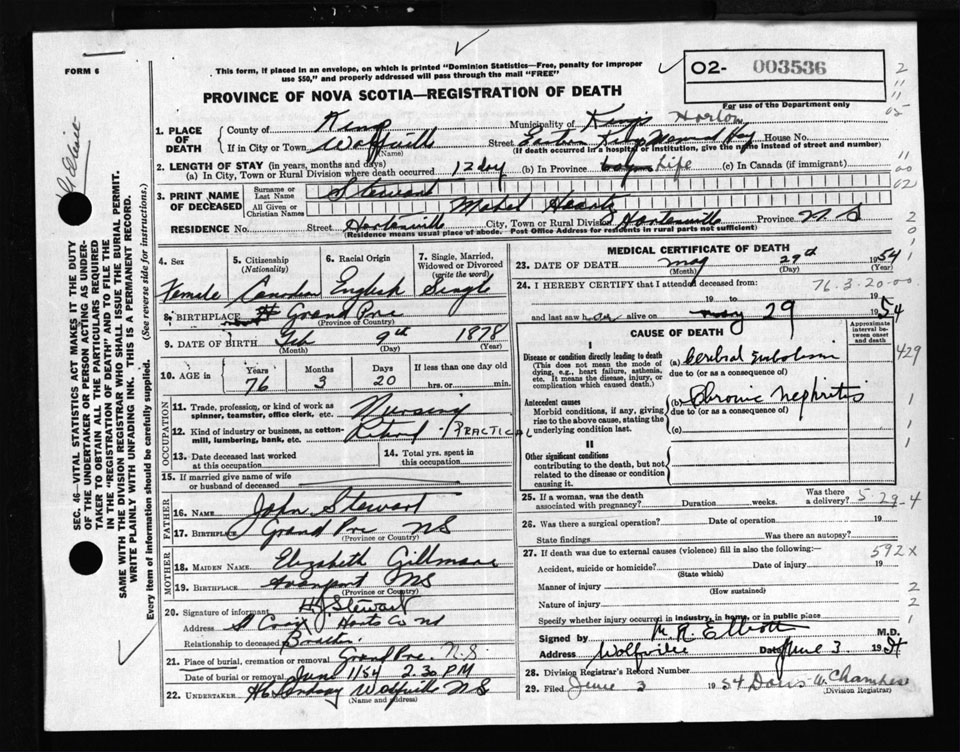 FORM 6
This form, if placed in an envelope, on which is printed "Dominion Statistics—Free, penalty for improper
use $50," and properly addressed will pass through the mail "FREE"
PROVINCE OF NOVA SCOTIA—REGISTRATION OF DEATH
O2- 003536
For use of the Department only
1. PLACE OF DEATH County of Kings Municipality of Kings Horton
If in City or Town Wolfville (Name) Street Eastern Kings Memorial House No.
(If death occurred in a hospital or institution, give the name instead of street and number)
2. LENGTH OF STAY (in years, months and days)
(a) In City, Town or Rural Division where death occurred 12 day (b) In Province Life (c) In Canada (if immigrant)
3. PRINT NAME OF DECEASED Surname or Last Name Stewart
All Given or Christian Names Mabel
RESIDENCE No. Street Hantsville City, Town or Rural Division Hantsville Province N S
(Residence means usual place of abode. Post Office Address for residents in rural parts not sufficient)
4. Sex Female
5. Citizenship (Nationality) Canadian
6. Racial Origin English
7. Single, Married, Widowed or Divorced (write the word) Single
8. BIRTHPLACE Grand Pre
(Province or Country)
9. DATE OF BIRTH Feb 9th 1878
(Month) (Day) (Year)
10. AGE in Years 76 Months 3 Days 20 If less than one day hrs. or min.
OCCUPATION
11. Trade, profession, or kind of work as spinner, teamster, office clerk, etc. Nursing
12. Kind of industry or business, as cotton-mill, lumbering, bank, etc. Retired - PRACTICAL
13. Date deceased last worked at this occupation
14. Total yrs. spent in this occupation
15. If married give name of wife or husband of deceased
FATHER
16. NAME John Stewart
17. BIRTHPLACE Grand Pre NS
(Province or Country)
MOTHER
18. MAIDEN NAME Elizabeth
19. BIRTHPLACE Avonport NS
(Province or Country)
20. Signature of informant H J Stewart
Address St Croix Hants Co NS
Relationship to deceased Brother
21. Place of burial, cremation or removal Grand Pre N.S.
Date of burial or removal June 1/54 2.30 PM
22. UNDERTAKER Lindsay Wolfville NS
(Name and address)
MEDICAL CERTIFICATE OF DEATH
23. DATE OF DEATH May 29th 1954
(Month) (Day) (Year)
24. I HEREBY CERTIFY that I attended deceased from 76.3.20-00
19 to 19
and last saw her alive on May 29 1954
CAUSE OF DEATH
Approximate interval between onset and death
I
Disease or condition directly leading to death
(This does not mean the mode of dying, e.g., heart failure, asthenia, etc. It means the disease, injury, or complication which caused death.)
(a) Cerebral Embolism
due to (or as a consequence of)
Antecedent causes
Morbid conditions, if any, giving rise to the above cause, stating the underlying condition last.
(b) Chronic nephritis
due to (or as a consequence of)
(c)
II
Other significant conditions
contributing to the death, but not related to the disease or condition causing it.
25. If a woman, was the death associated with pregnancy? Duration weeks. Was there a delivery? 5-29-4
26. Was there a surgical operation? Date of operation 19
State findings Was there an autopsy?
27. If death was due to external causes (violence) fill in also the following:— 592X
Accident, suicide or homicide? Date of injury 19
(State which)
Manner of injury
(How sustained)
Nature of injury
Specify whether injury occurred in industry, in home, or in public place
Signed by M R Elliott M.D.
Address Wolfville Date June 3 1954
28. Division Registrar's Record Number
29. Filed June 3 1954 Doris W. Chambers
(Division Registrar)
SEC. 46—VITAL STATISTICS ACT MAKES IT THE DUTY
OF THE UNDERTAKER OR PERSON ACTING AS UNDERTAKER
TO OBTAIN ALL THE PARTICULARS REQUIRED
IN THE "REGISTRATION OF DEATH" AND TO FILE THE
SAME WITH THE DIVISION REGISTRAR WHO SHALL ISSUE THE BURIAL PERMIT.
WRITE PLAINLY WITH UNFADING INK. THIS IS A PERMANENT RECORD.
Every item of information should be carefully supplied. (See reverse side for instructions.)